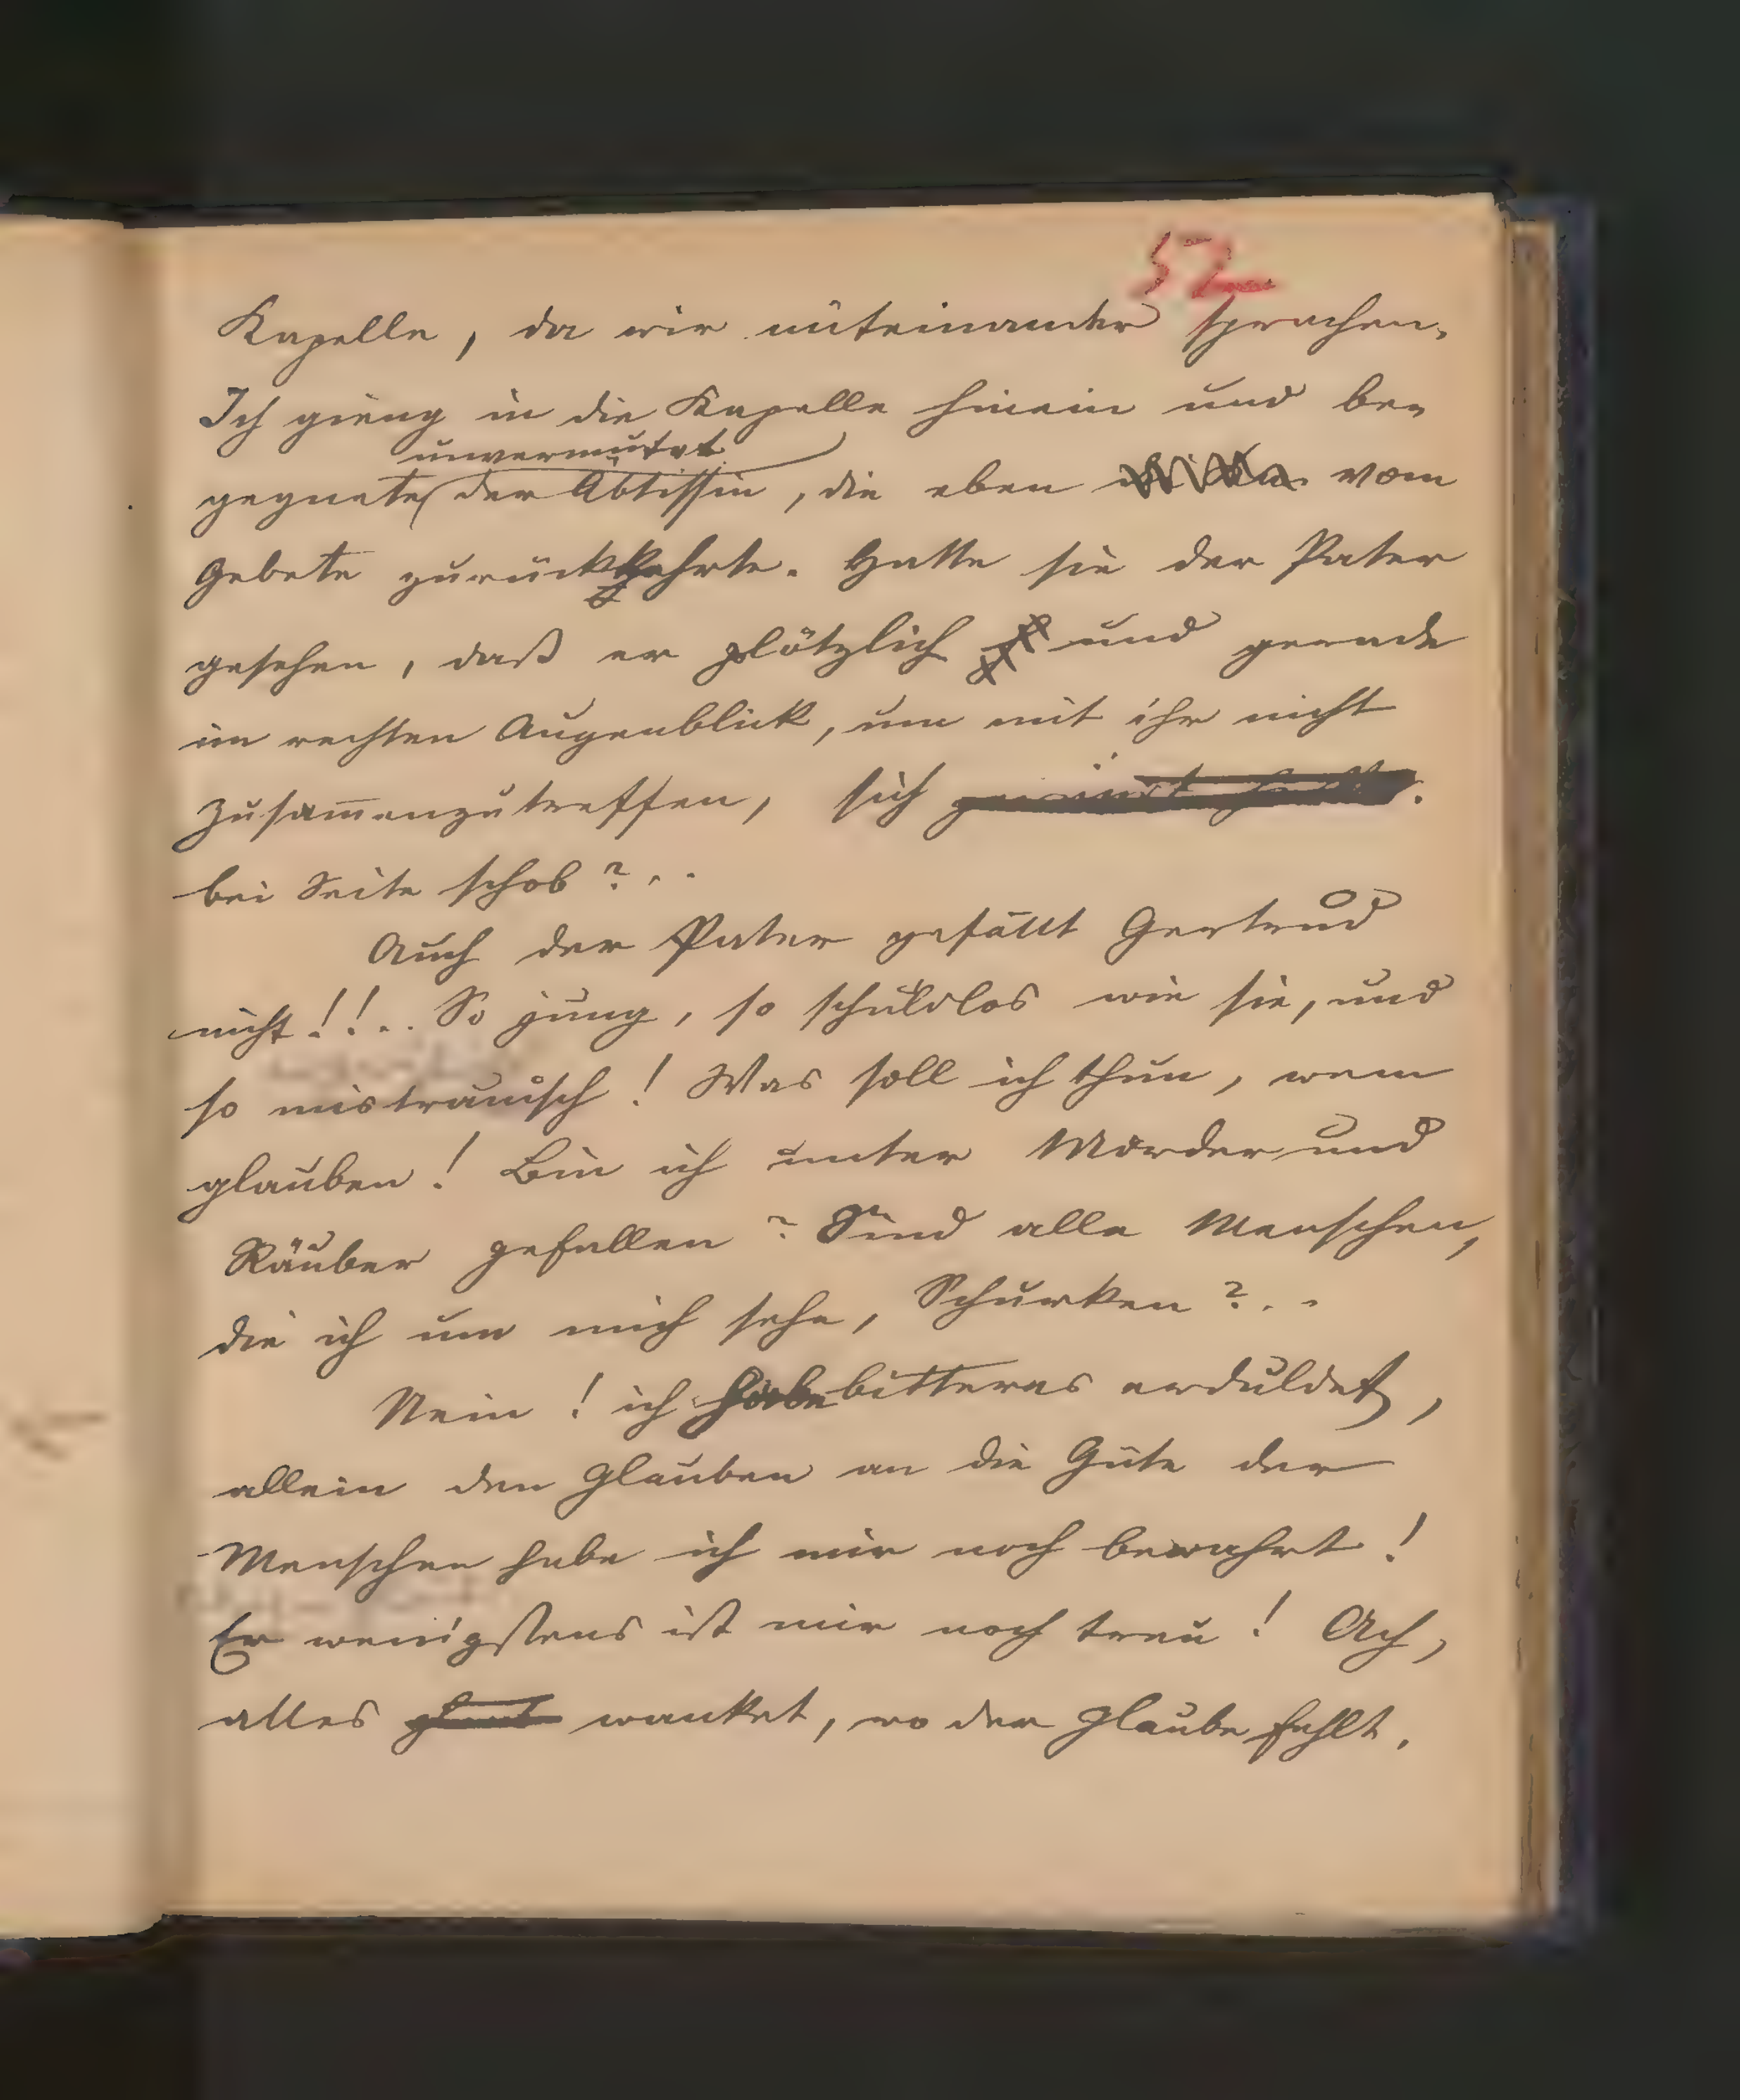 52
Kapelle, da wir miteinander sprachen.
Ich gieng in die Kapelle hinein und be-
unvermutet
gegnete der Äbtissin, die eben vom
Gebete zurückkehrte. Hatte sie der Pater
gesehen, daß er plötzlich und gerade
im rechten Augenblick, um mit ihr nicht
zusammenzutreffen, sich
bei Seite schob?..
Auch der Pater gefällt Gertrud
nicht!!.. So jung, so schuldlos wie sie, und
so mistrauisch! Was soll ich thun, wem
glauben! Bin ich unter Mörder und
Räuber gefallen? Sind alle Menschen,
die ich um mich sehe, Schurken?..
Nein! ich habe bitteres erduldet,
allein den Glauben an die Güte der
Menschen habe ich mir noch bewahrt!
Er wenigstens ist mir noch treu! Ach,
alles wanket, wo der Glaube fehlt.